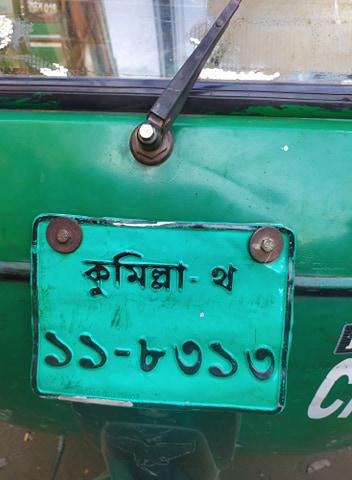 কুমিল্লা-থ
১১-৮৩১৩